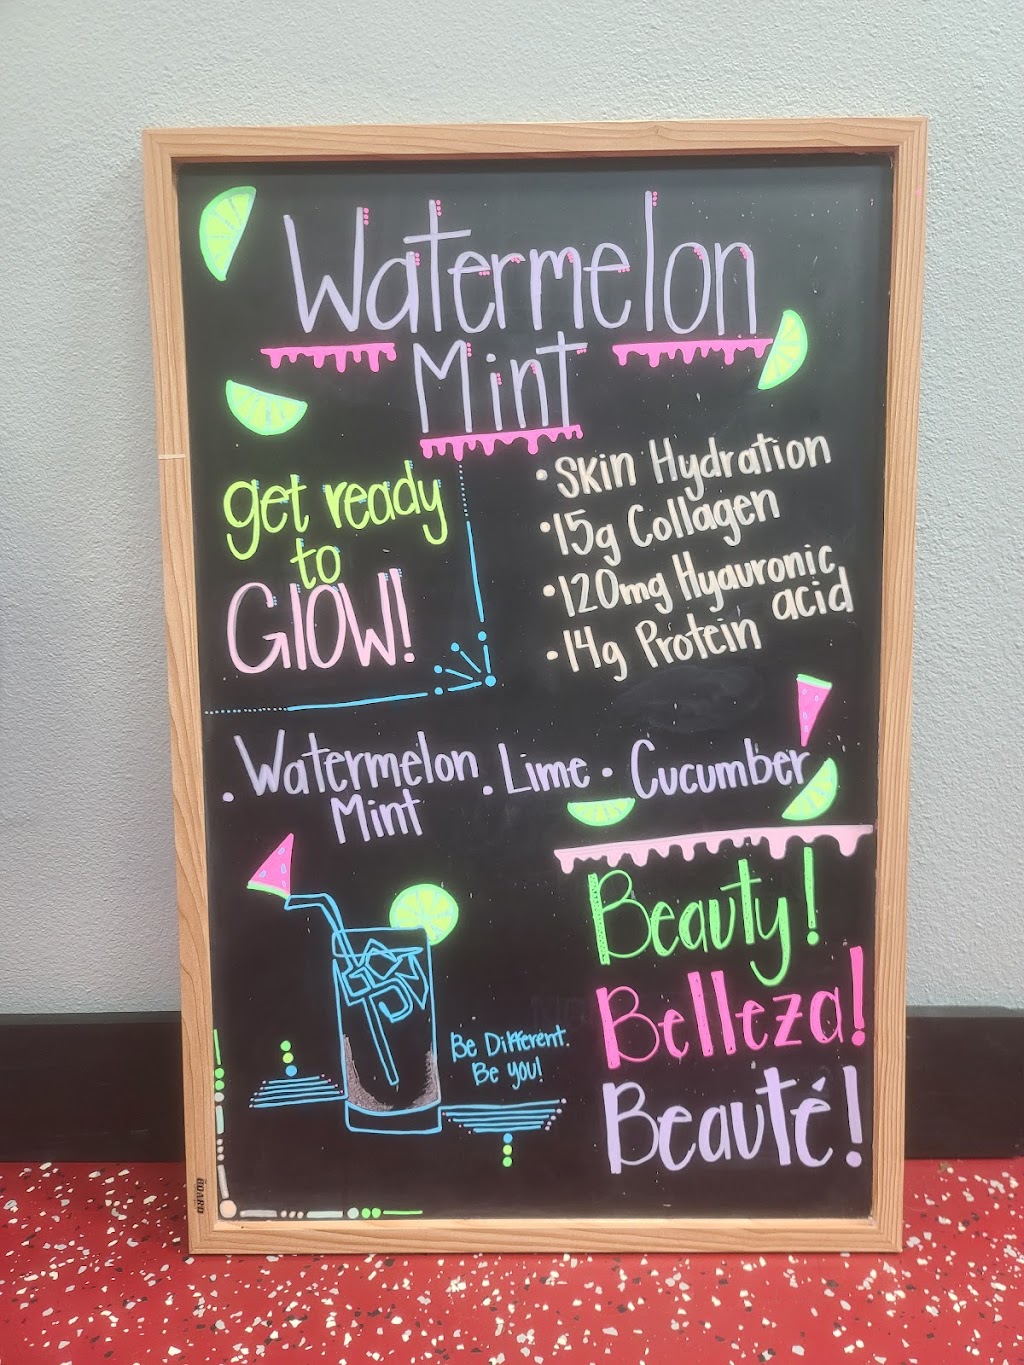 Watermelon
Mint
get ready
to
GLOW!
• Skin Hydration
• 15g Collagen
• 120mg Hyauronic
acid
• 14g Protein
• Watermelon • Lime • Cucumber
Mint
Beauty!
Belleza!
Beauté!
Be Different.
Be you!
BOARD